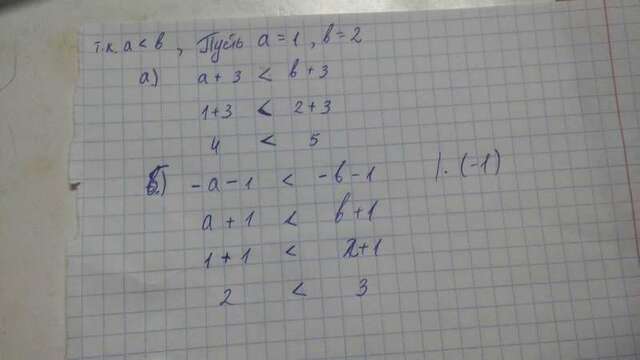 т.к. a < b , Пусть a = 1 , b = 2
а) a + 3 < b + 3
1+3 < 2+3
4 < 5
б) -a-1 < -b-1 |·(-1)
a + 1 < b+1
1+1 < 2+1
2 < 3